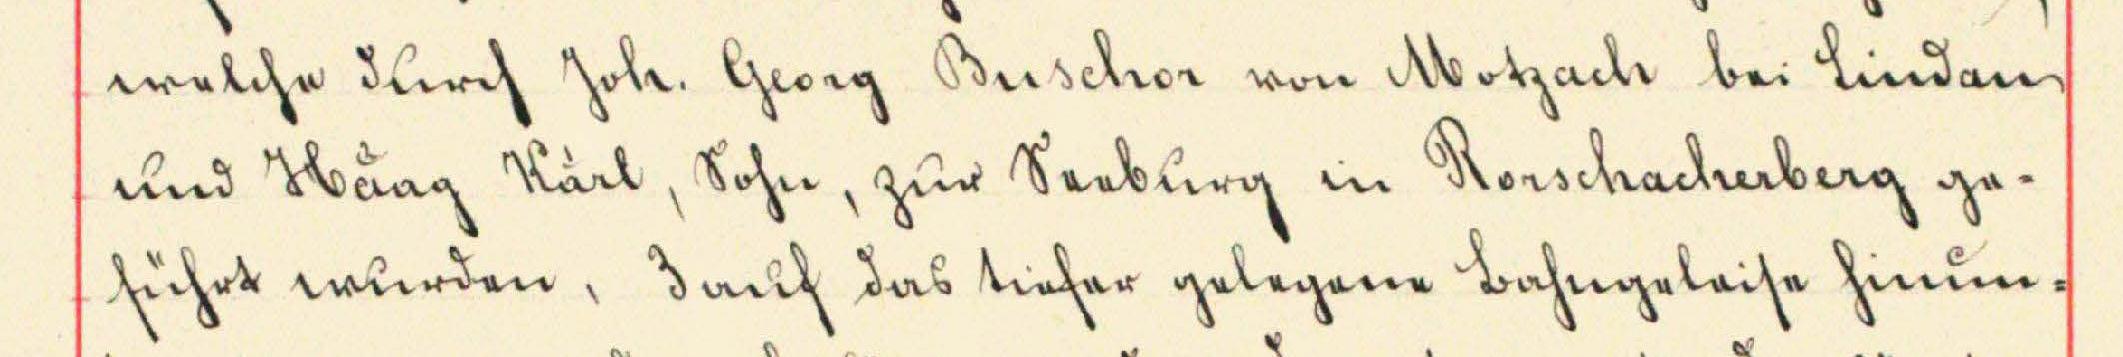 welche durch Joh. Georg Buschor von Motzach bei Lindau
und Häag Karl, Sohn, zur Seeburg in Rorschacherberg ge-
führt wurden, 3 auf das tiefer gelegene Bahngeleise hinun-